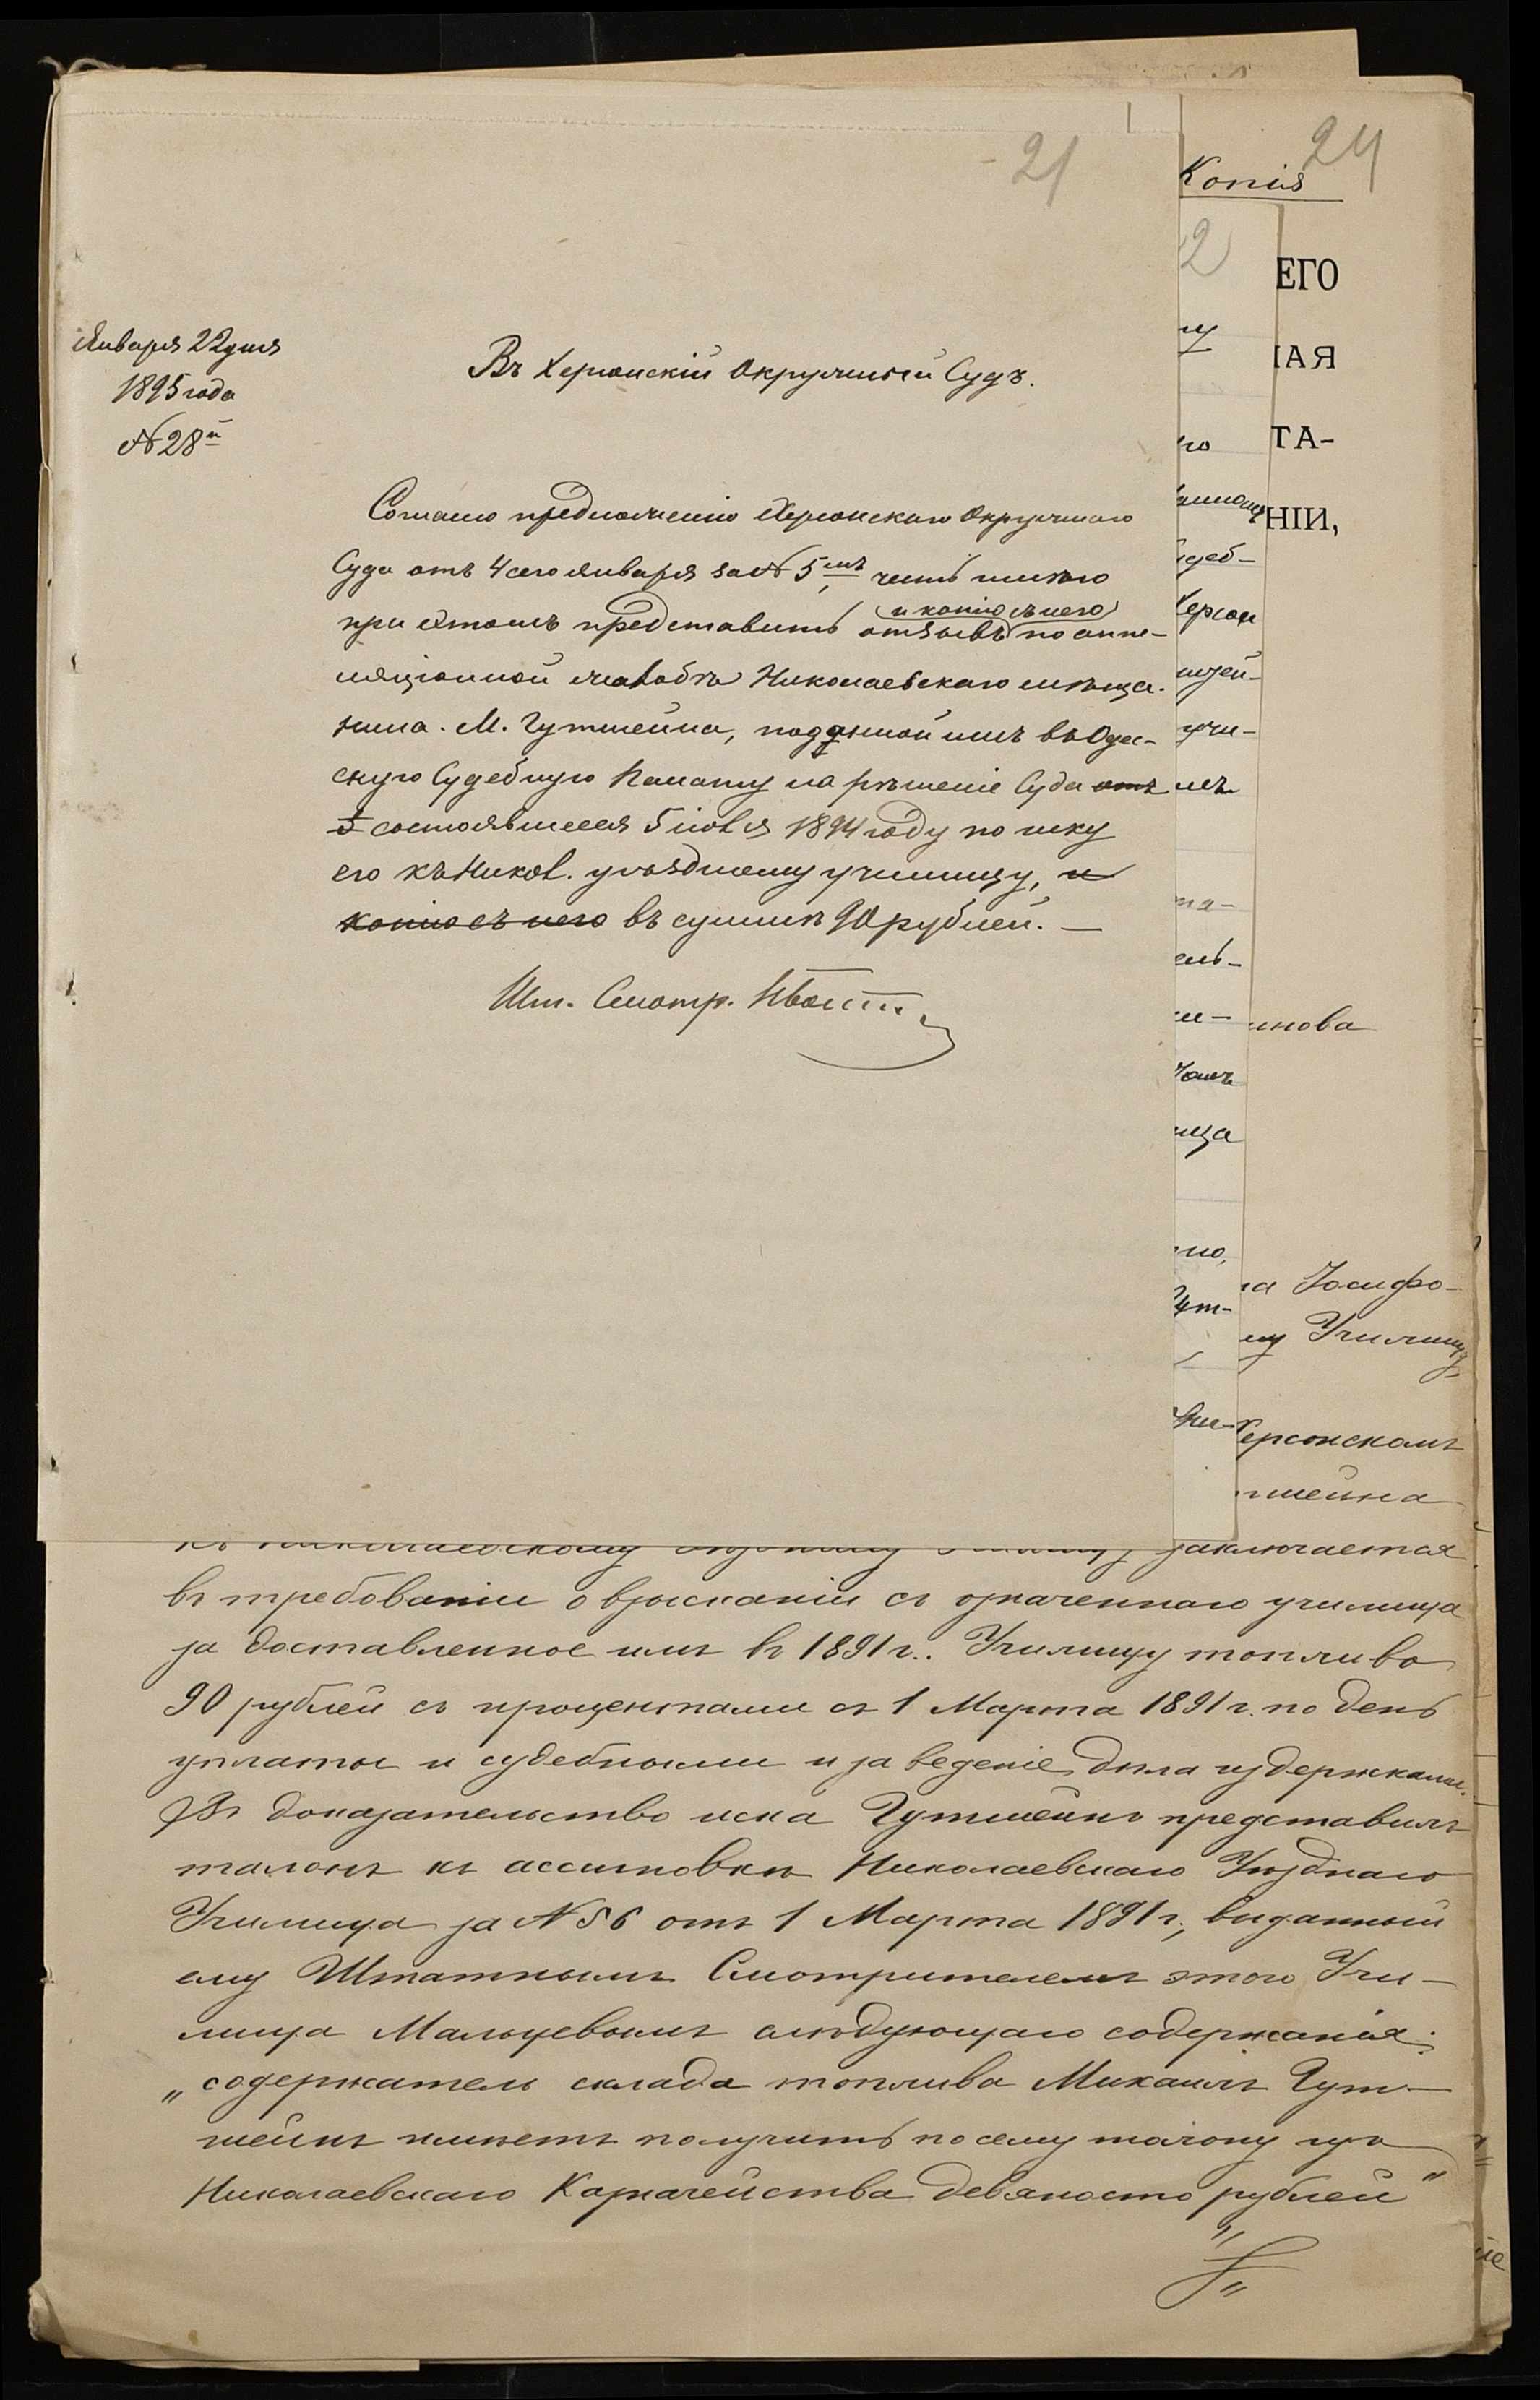 21
24
Копія
2
ЕГО
ІАЯ
ТА-
НІИ,
Января 22 дня
1895 года
№ 28й
Въ Херсонскій Окружный Судъ.
Согласно предложенію Херсонскаго Окружнаго
Суда отъ 4 сего Января за № 5мъ, честь имѣю
и копію съ него
при этомъ представить отзывъ по аппе-
ляціонной жалобѣ Николаевскаго мѣща-
нина. М. Гутшейна, поданной имъ въ Одес-
скую Судебную Палату на рѣшеніе Суда отъ
5 состоявшееся 5 іюля 1894 году по иску
его къ Никол. уѣздному училищу, и
копію съ него въ суммѣ 90 рублей. —
Шт. Смотр.
инова
на Іосифо-
му Училищу
Херсонскомъ
тшейна
заключается
въ требованіи о взысканіи съ означеннаго училища
за доставленное имъ въ 1891 г. Училищу топливо
90 рублей съ процентами съ 1 Марта 1891 г. по день
уплаты и судебными и за веденіе дѣла издержками.
Въ доказательство иска Гутшейнъ представилъ
талонъ къ ассигновкѣ Николаевскаго Уѣзднаго
Училища за № 56 отъ 1 Марта 1891 г., выданный
ему Штатнымъ Смотрителемъ этого Учи-
лища Мальцевымъ слѣдующаго содержанія:
„содержатель склада топлива Михаилъ Гут-
шейнъ имѣетъ получить по сему талону изъ
Николаевскаго Казначейства девяносто рублей"